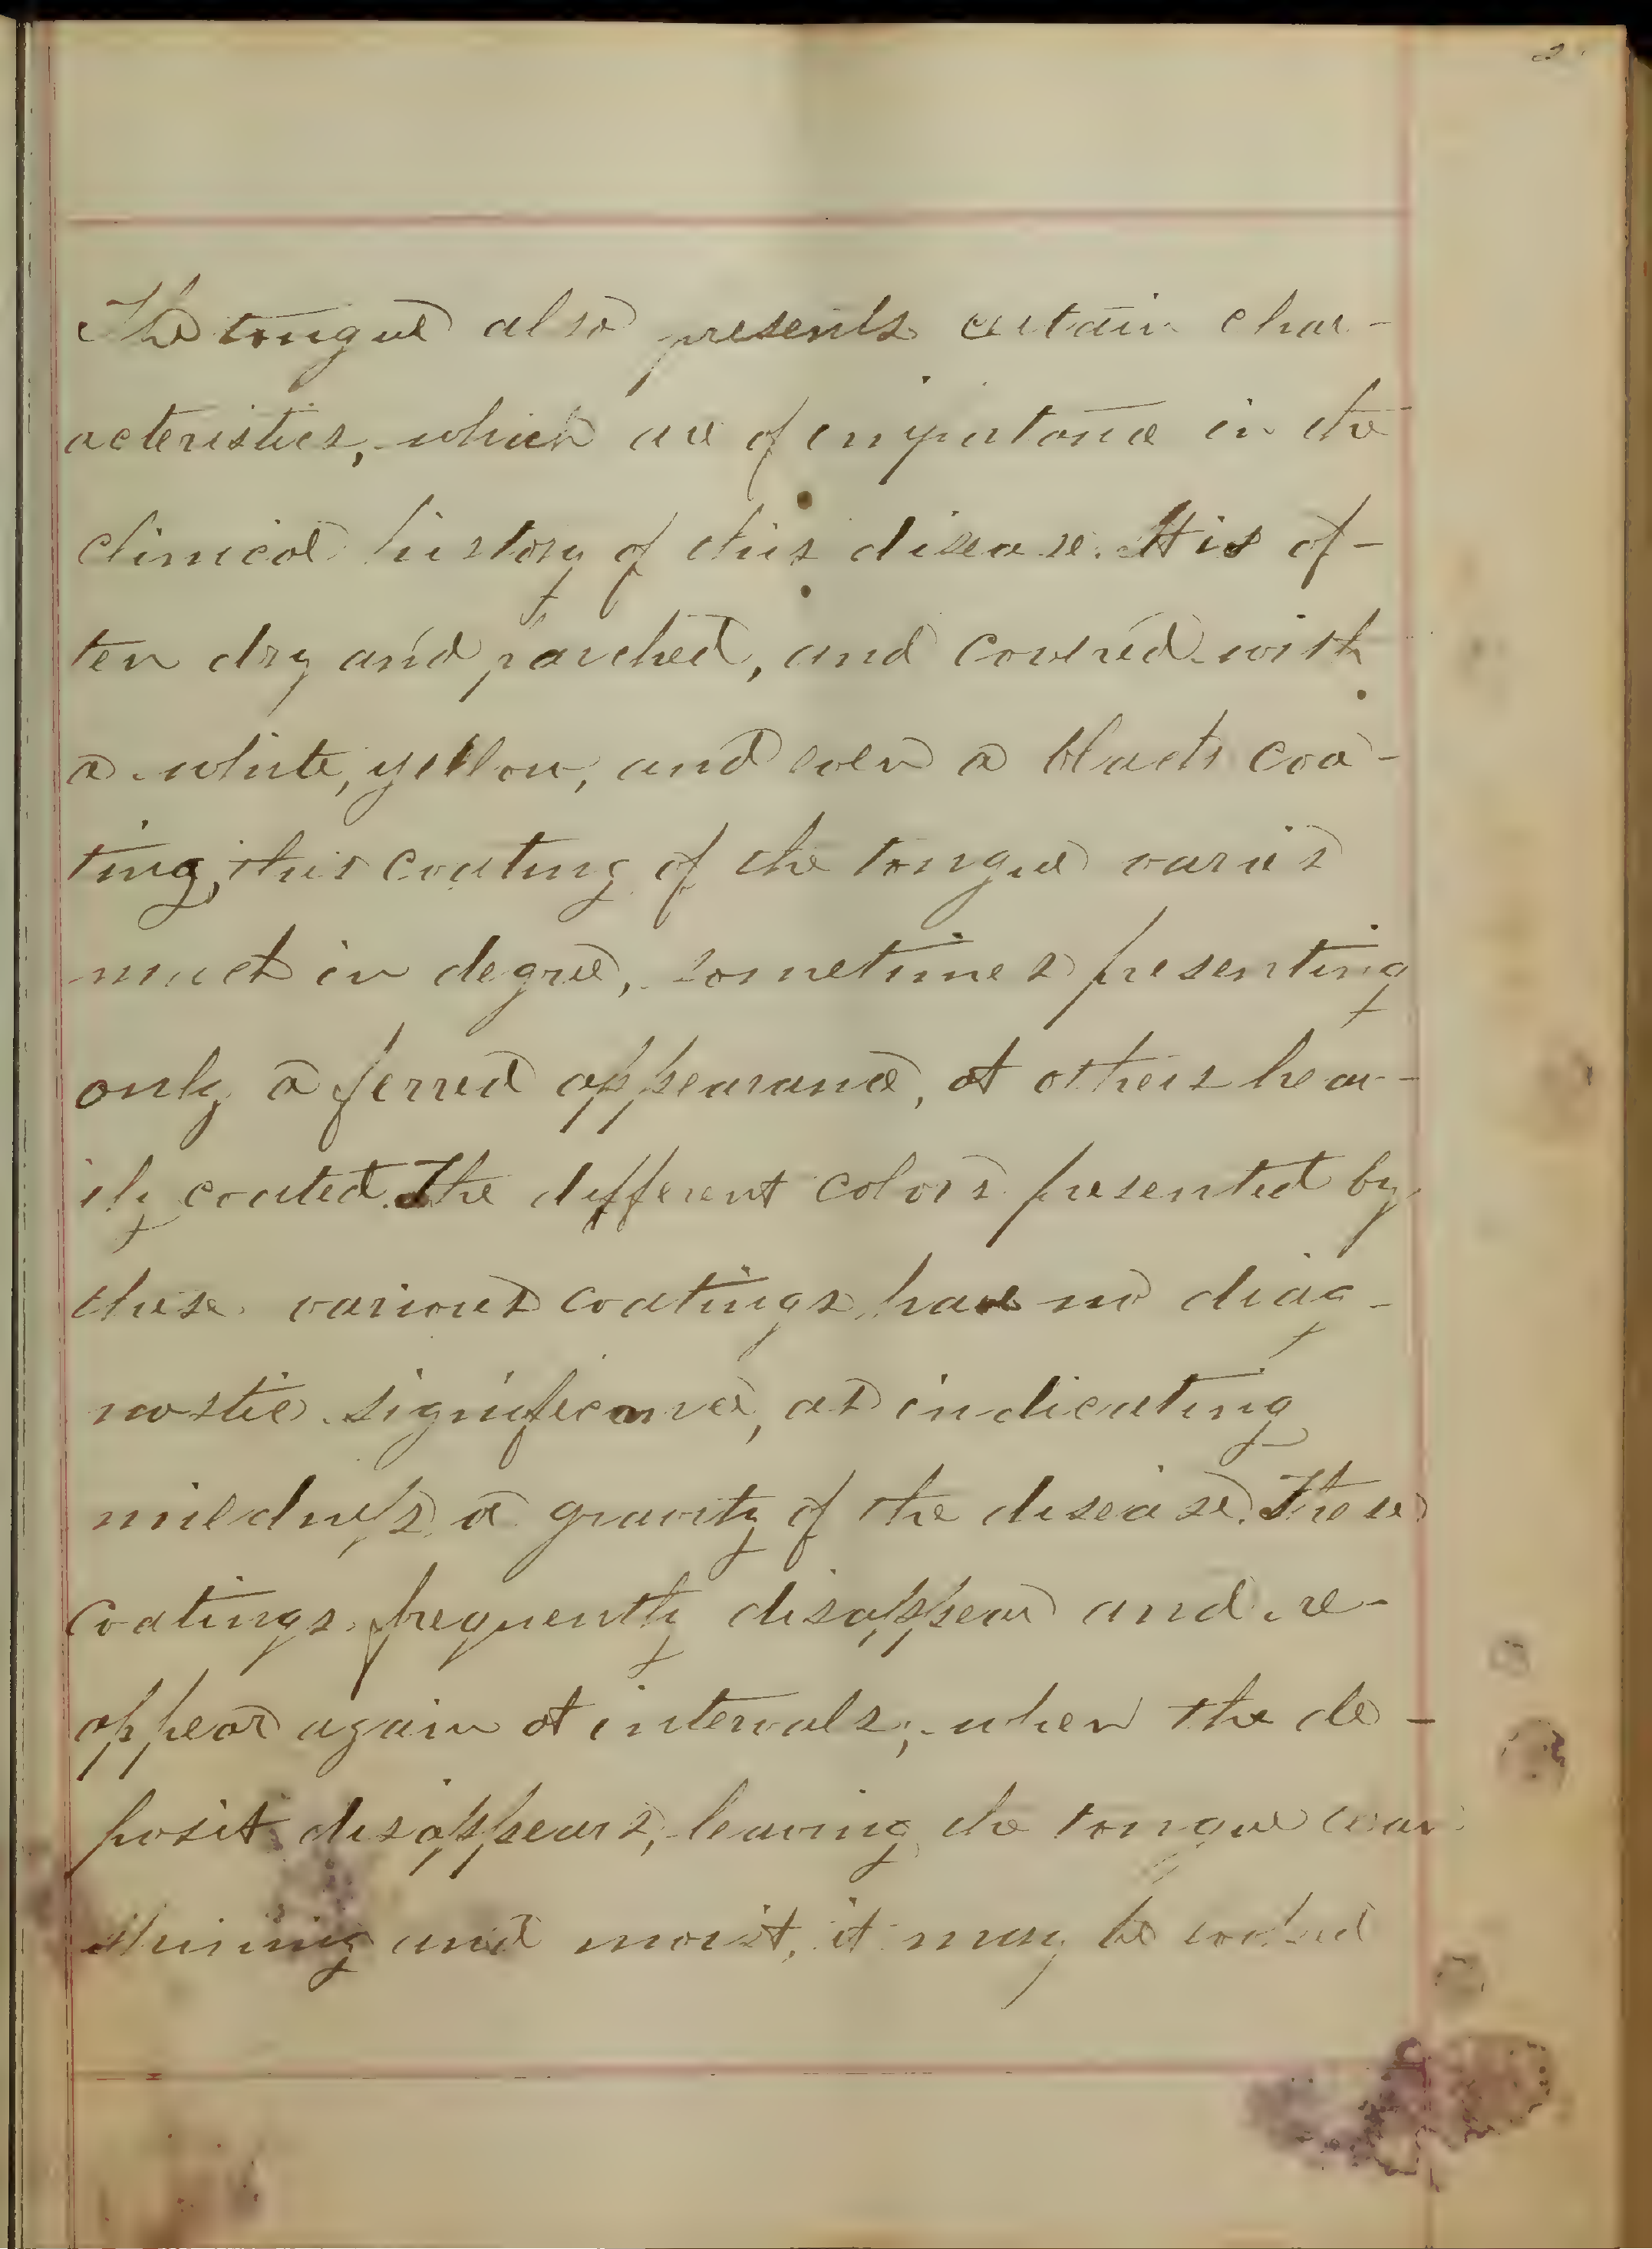 The tongue also presents certain char-
acteristics, which are of importance in the
clinical history of this disease. It is of-
ten dry and parched, and covered with
a white, yellow, and even a black coa-
ting, this coating of the tongue varies
much in degree, sometimes presenting
only a ferred appearance, at others heav-
ily coated. The different colors presented by
these various coatings have no diag-
nostic significance, as indicating
mildness or gravity of the disease. These
coatings frequently disappear and re-
appear again at intervals; when the de-
posit disappears, leaving the tongue clean
shining and moist, it may be looked